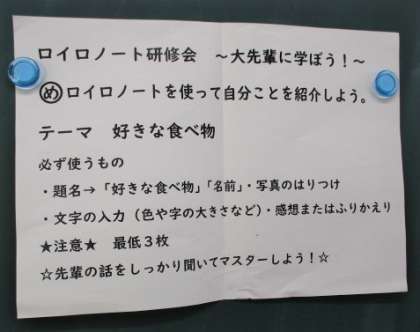 ロイロノート研修会　～大先輩に学ぼう！～
㋱ロイロノートを使って自分ことを紹介しよう。
テーマ　好きな食べ物
必ず使うもの
・題名→「好きな食べ物」「名前」・写真のはりつけ
・文字の入力（色や字の大きさなど）・感想またはふりかえり
★注意★　最低３枚
☆先輩の話をしっかり聞いてマスターしよう！☆